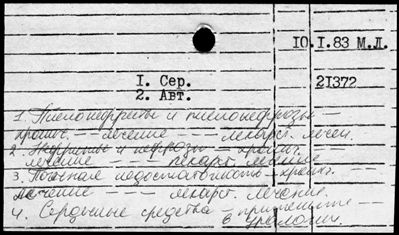 10.I.83 М.Л.
I. Сер.
21372
2. Авт.
1. Пиелонефриты и пиелонефрозы –
хронич. – – лечение – – лекарст. лечен.
2. Нефриты и нефрозы – хронич. –
лечение – – лекарст. лечение
3. Почечная недостаточность – хронич. –
лечение – – лекарст. лечение.
4. Сердечные средства – применение –
в урологии.